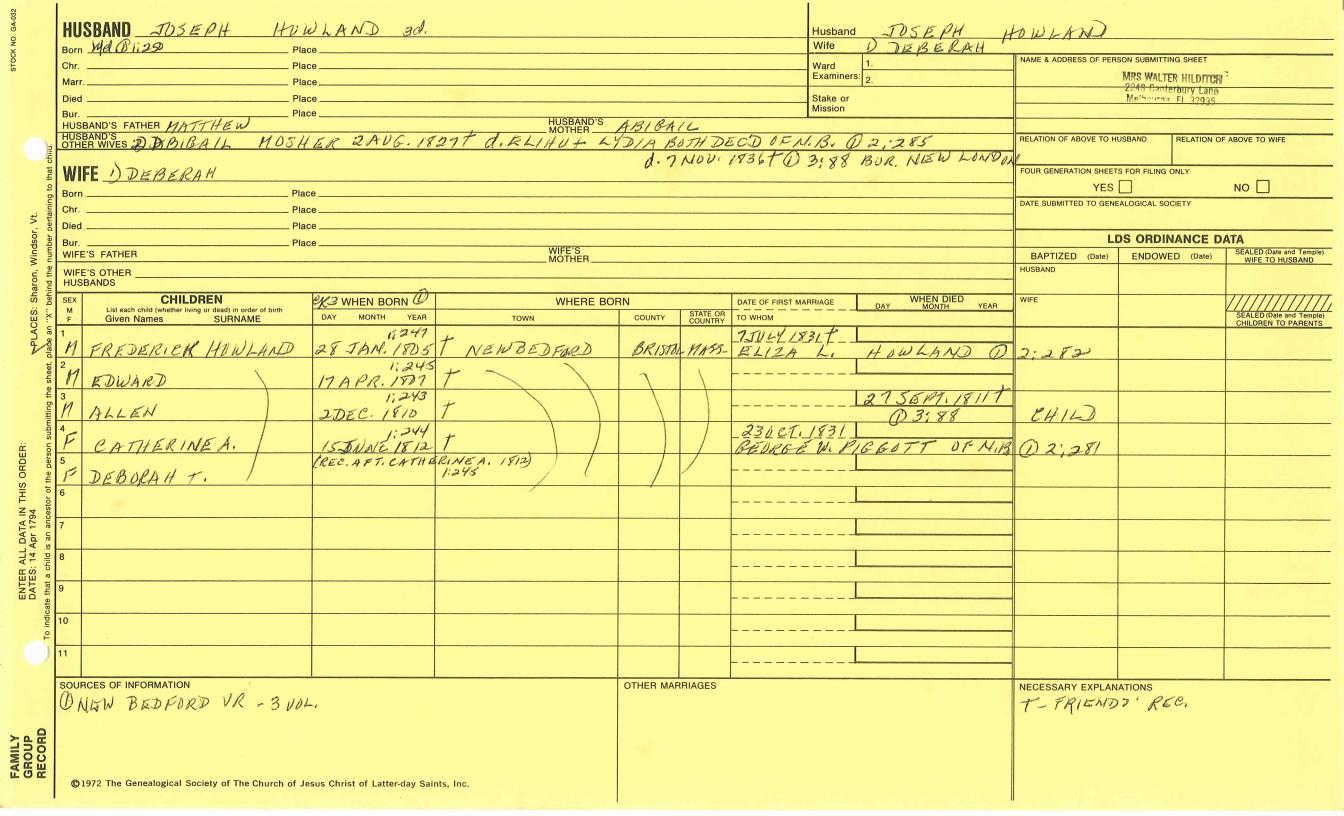 STOCK NO. GA-032
HUSBAND JOSEPH HOWLAND 3d.
Born Place
Chr. Place
Marr. Place
Died Place
Bur. Place
HUSBAND'S FATHER MATTHEW HUSBAND'S MOTHER ABIGAIL
HUSBAND'S OTHER WIVES MOSHER 2 AUG. 1827† d. ELIHU + LYDIA BOTH DEC'D OF N.B. ① 2:285
d. 7 NOV. 1836† ① 3:88 BUR. NEW LONDON
Husband JOSEPH HOWLAND
Wife 1) DEBERAH
Ward Examiners: 1.
2.
Stake or Mission
NAME & ADDRESS OF PERSON SUBMITTING SHEET
MRS WALTER HILDITCH
2249 Canterbury Lane
Melbourne, FL 32935
RELATION OF ABOVE TO HUSBAND RELATION OF ABOVE TO WIFE
FOUR GENERATION SHEETS FOR FILING ONLY
YES NO
DATE SUBMITTED TO GENEALOGICAL SOCIETY
WIFE 1) DEBERAH
Born Place
Chr. Place
Died Place
Bur. Place
WIFE'S FATHER WIFE'S MOTHER
WIFE'S OTHER HUSBANDS
LDS ORDINANCE DATA
BAPTIZED (Date) ENDOWED (Date) SEALED (Date and Temple) WIFE TO HUSBAND
HUSBAND
WIFE
SEALED (Date and Temple) CHILDREN TO PARENTS
SEX M F
CHILDREN
List each child (whether living or dead) in order of birth
Given Names SURNAME
WHEN BORN ①
DAY MONTH YEAR
WHERE BORN
TOWN COUNTY STATE OR COUNTRY
DATE OF FIRST MARRIAGE
TO WHOM
WHEN DIED
DAY MONTH YEAR
1 1:247 7 JULY 1831†
M FREDERICK HOWLAND 28 JAN. 1805 † NEW BEDFORD BRISTOL MASS. ELIZA L. HOWLAND ① 2:282
2 1:245
M EDWARD 17 APR. 1807 †
3 1:243 27 SEPT. 1811†
M ALLEN 2 DEC. 1810 † ① 3:88 CHILD
4 1:244 23 OCT. 1831
F CATHERINE A. 15 JUNE 1812 † GEORGE W. PIGGOTT OF N.B. ① 2:281
5 (REC. AFT. CATHERINE A. 1812)
F DEBORAH T. 1:245
6
7
8
9
10
11
SOURCES OF INFORMATION
① NEW BEDFORD VR - 3 VOL.
OTHER MARRIAGES
NECESSARY EXPLANATIONS
† - FRIENDS' REC.
©1972 The Genealogical Society of The Church of Jesus Christ of Latter-day Saints, Inc.
FAMILY GROUP RECORD
ENTER ALL DATA IN THIS ORDER:
DATES: 14 Apr 1794
PLACES: Sharon, Windsor, Vt.
To indicate that a child is an ancestor of the person submitting the sheet, place an "X" behind the number pertaining to that child.